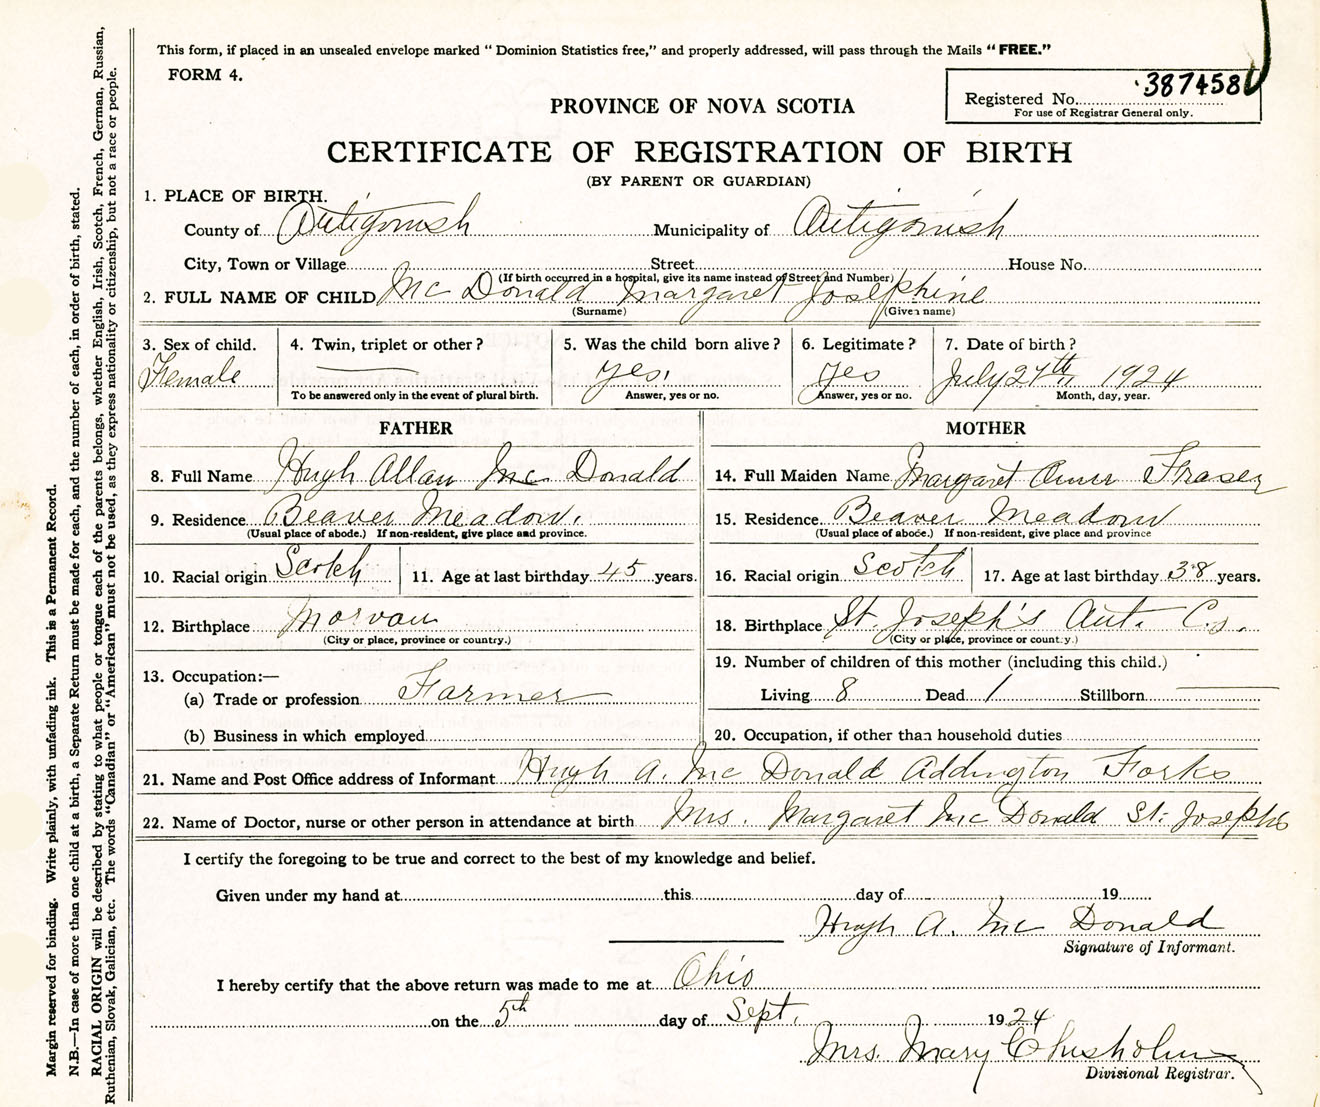 This form, if placed in an unsealed envelope marked "Dominion Statistics free," and properly addressed, will pass through the Mails "FREE."
FORM 4.
Registered No. 387458
For use of Registrar General only.
PROVINCE OF NOVA SCOTIA
CERTIFICATE OF REGISTRATION OF BIRTH
(BY PARENT OR GUARDIAN)
1. PLACE OF BIRTH.
County of Antigonish Municipality of Antigonish
City, Town or Village Street House No.
(If birth occurred in a hospital, give its name instead of Street and Number)
2. FULL NAME OF CHILD Mc Donald Margaret Josephine
(Surname) (Given name)
3. Sex of child. 4. Twin, triplet or other? 5. Was the child born alive? 6. Legitimate? 7. Date of birth?
Female yes. yes July 27th 1924
To be answered only in the event of plural birth. Answer, yes or no. Answer, yes or no. Month, day, year.
FATHER MOTHER
8. Full Name Hugh Allan Mc Donald 14. Full Maiden Name Margaret Fraser
9. Residence Beaver Meadow. 15. Residence Beaver Meadow
(Usual place of abode.) If non-resident, give place and province. (Usual place of abode.) If non-resident, give place and province
10. Racial origin Scotch 11. Age at last birthday 45 years. 16. Racial origin Scotch 17. Age at last birthday 38 years.
12. Birthplace Morvan 18. Birthplace St. Joseph's Ant. Co.
(City or place, province or country.) (City or place, province or country.)
13. Occupation:— 19. Number of children of this mother (including this child.)
(a) Trade or profession Farmer Living 8 Dead 1 Stillborn
(b) Business in which employed 20. Occupation, if other than household duties
21. Name and Post Office address of Informant Hugh A. Mc Donald Addington Forks
22. Name of Doctor, nurse or other person in attendance at birth Mrs. Margaret Mc Donald St. Josephs
I certify the foregoing to be true and correct to the best of my knowledge and belief.
Given under my hand at this day of 19
Hugh A. Mc Donald
Signature of Informant.
I hereby certify that the above return was made to me at Ohio
on the 5th day of Sept. 1924
Mrs. Mary Chisholm
Divisional Registrar.
Margin reserved for binding. Write plainly, with unfading ink. This is a Permanent Record.
N.B.—In case of more than one child at a birth, a Separate Return must be made for each, and the number of each, in order of birth, stated.
RACIAL ORIGIN will be described by stating to what people or tongue each of the parents belongs, whether English, Irish, Scotch, French, German, Russian,
Ruthenian, Slovak, Galician, etc. The words "Canadian" or "American" must not be used, as they express nationality or citizenship, but not a race or people.